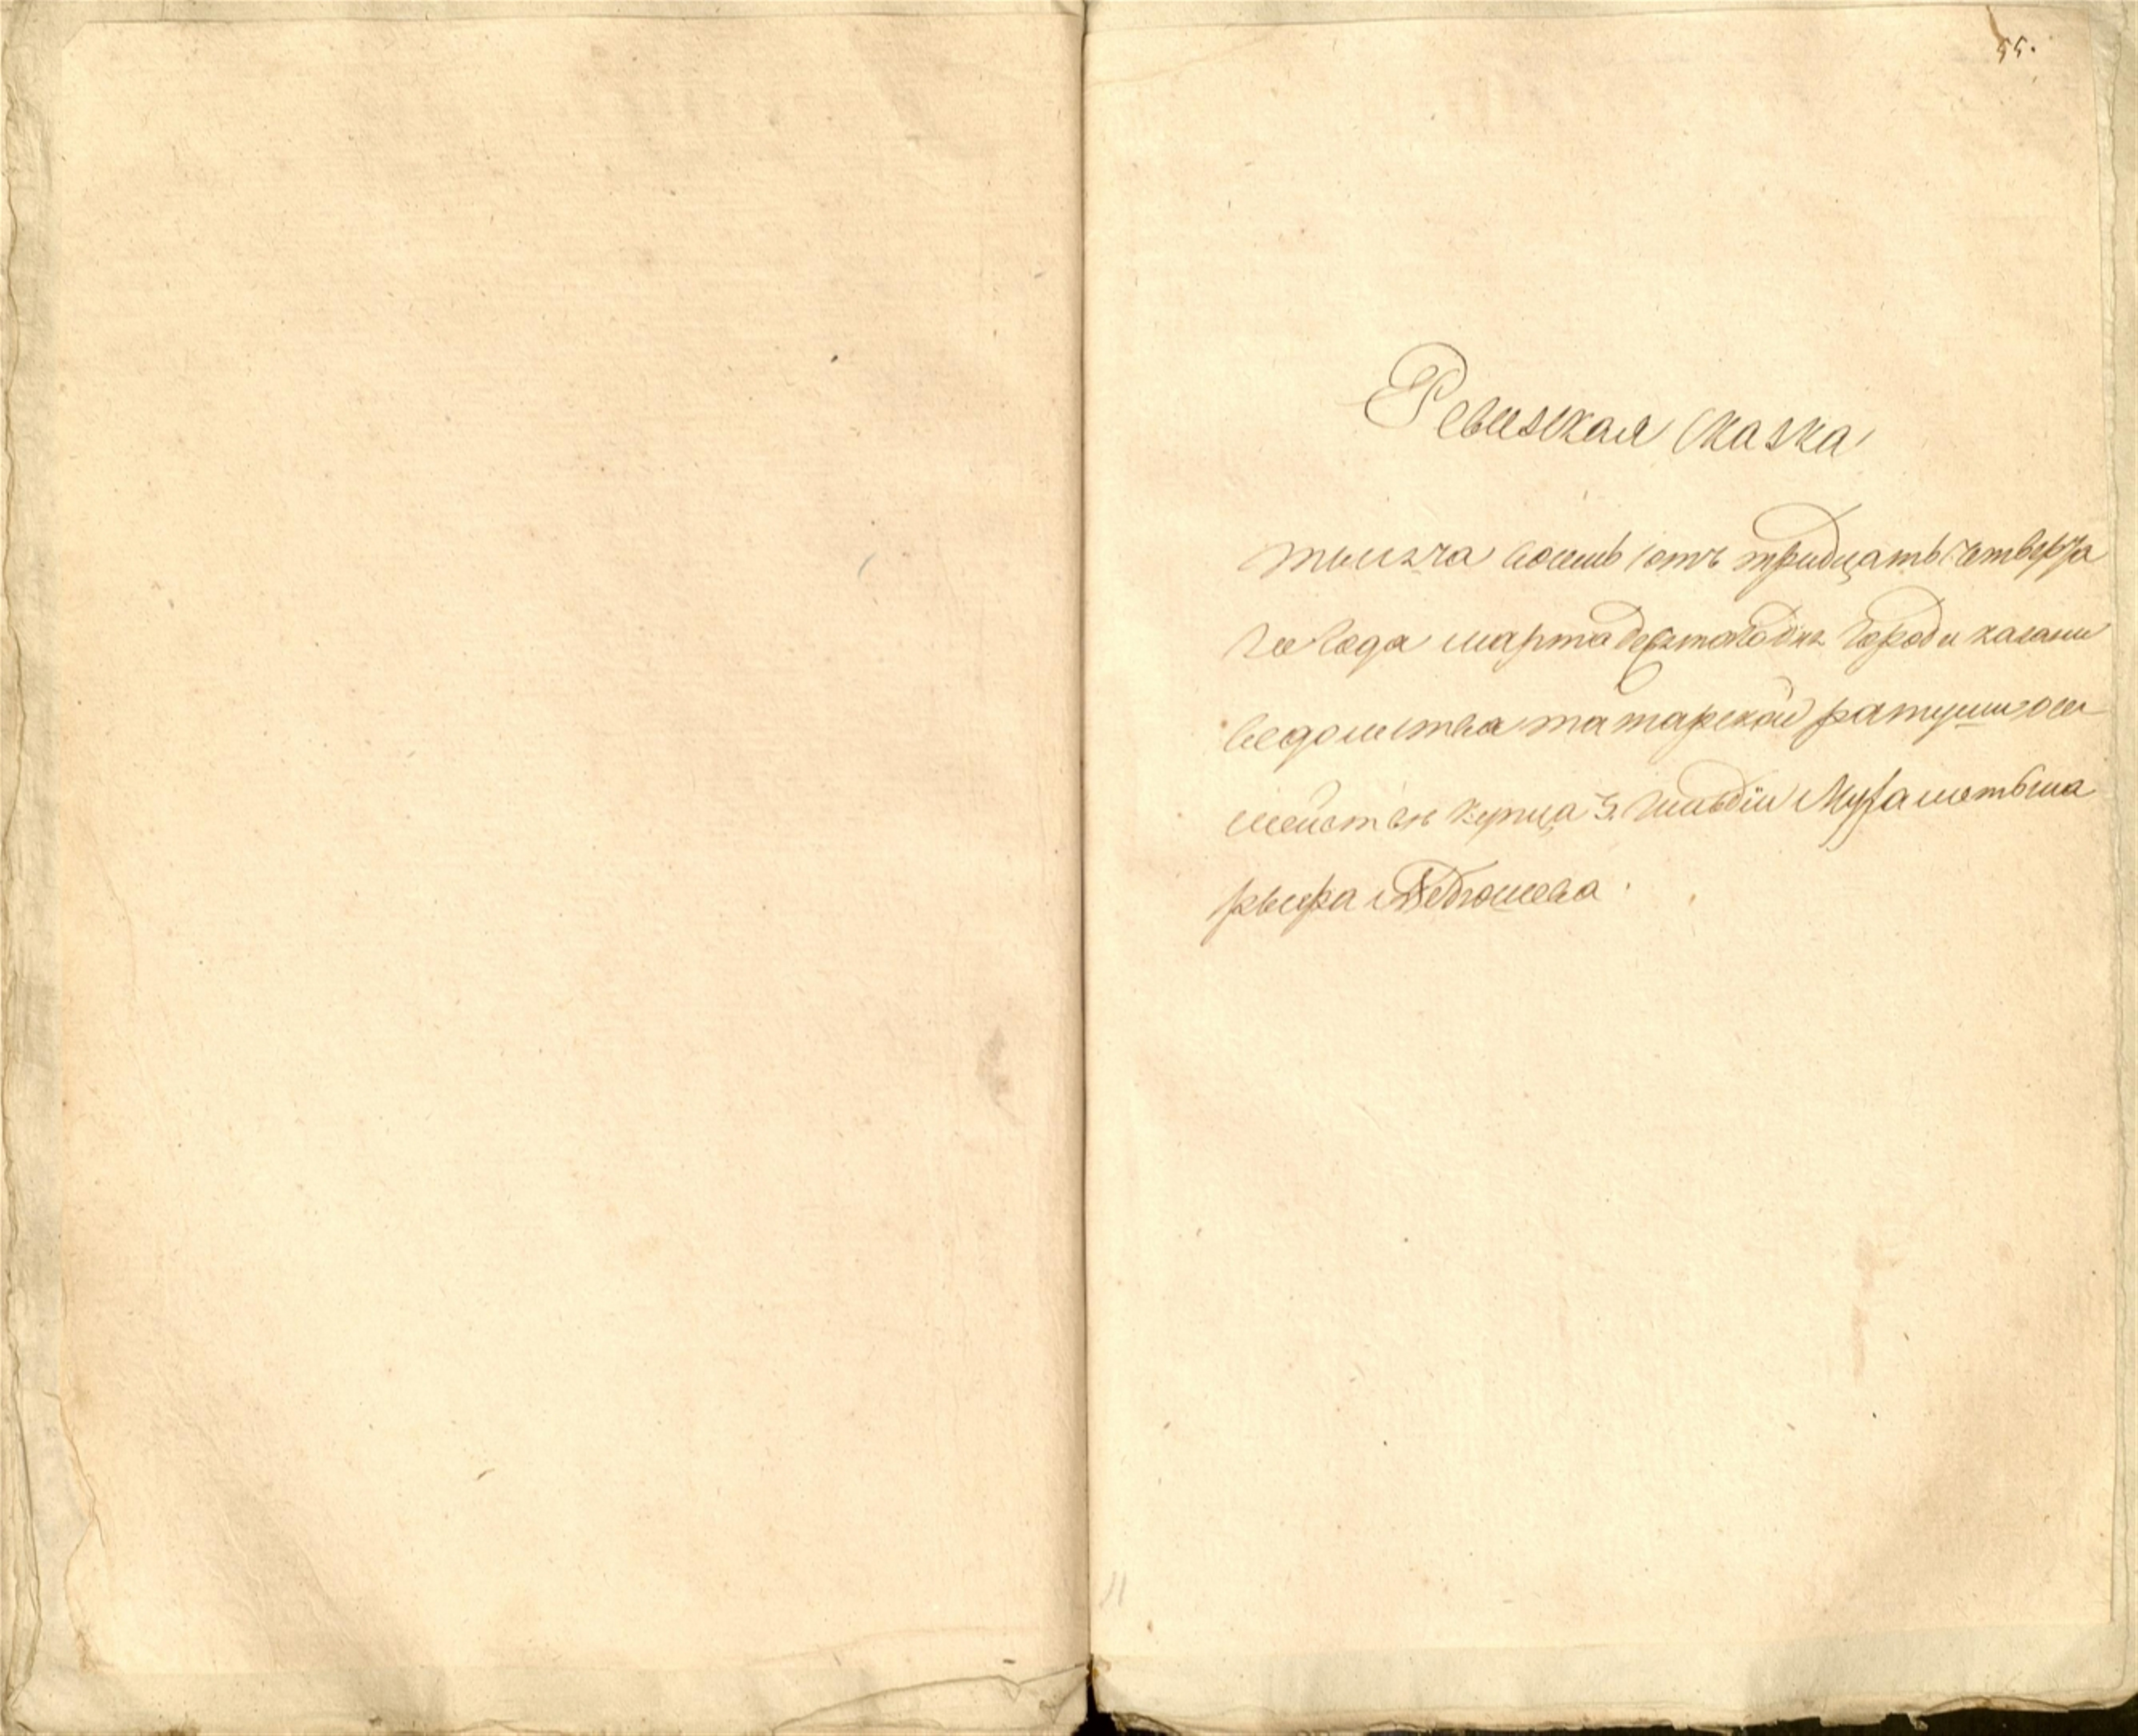 55.
Ревизская сказка
тысяча восемь сотъ тридцать четверта
го года марта дня города казани
ведомства татарской ратуши о се
мействе купца 3. гильдии Мухаметьша
рыфа